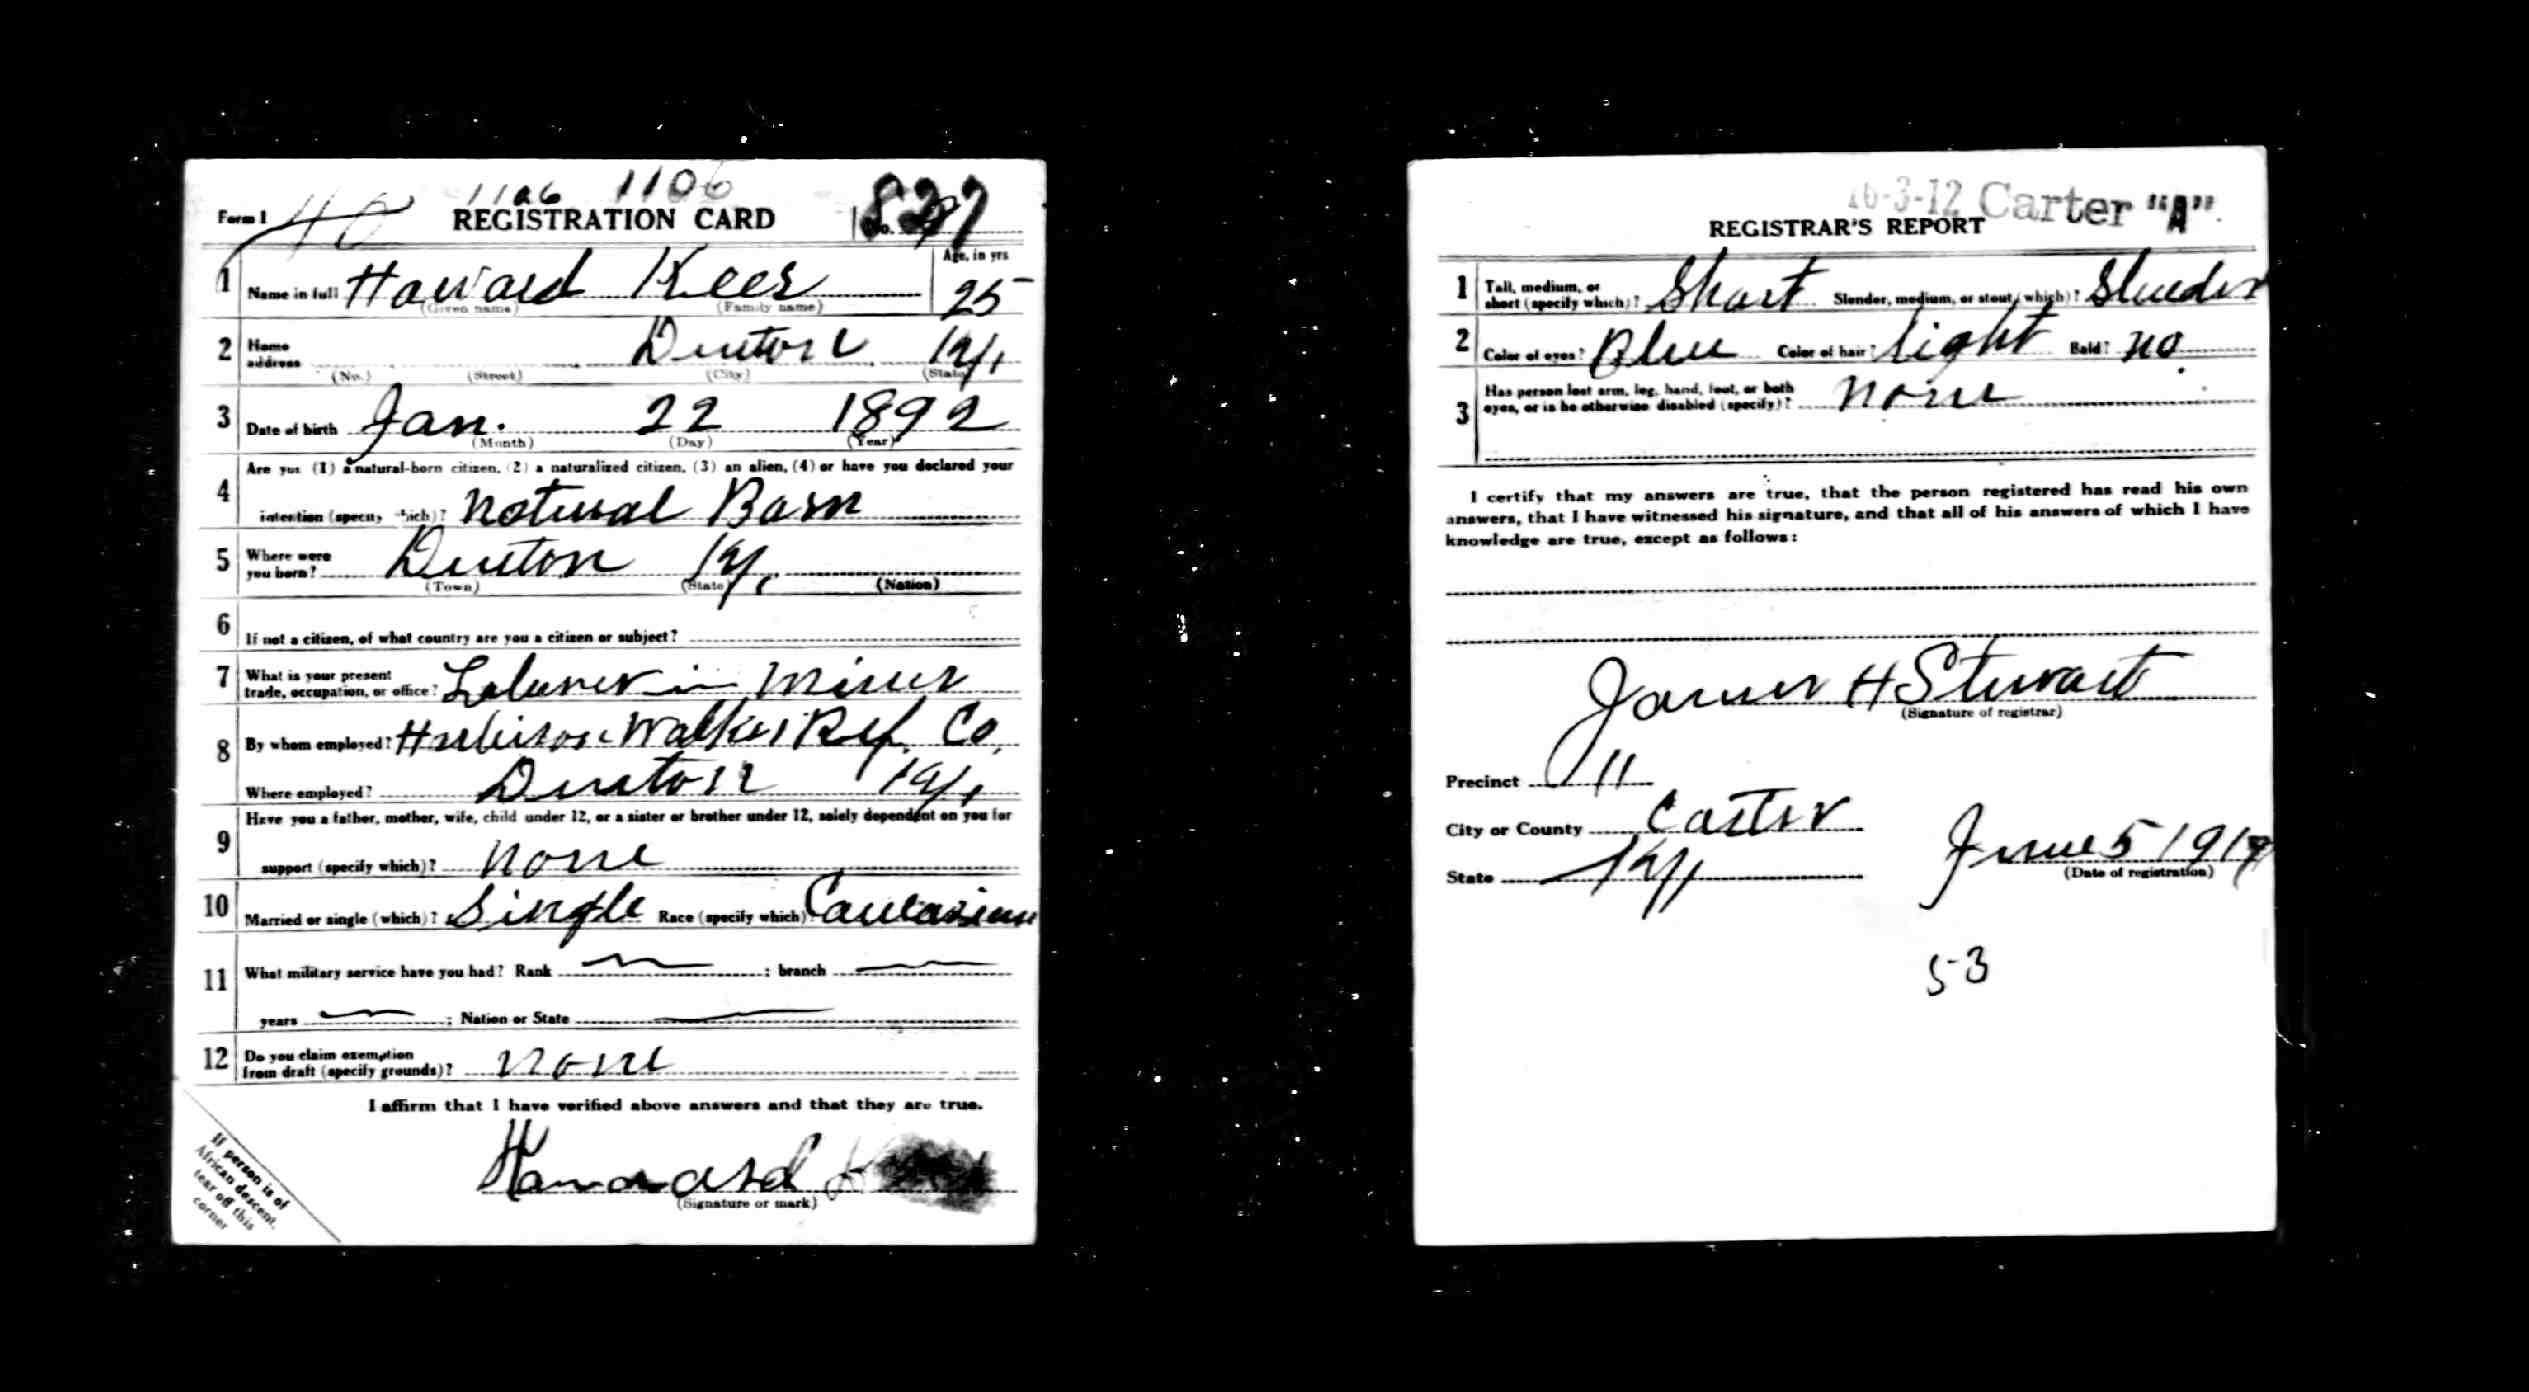 1106 1106
Form 1 40 REGISTRATION CARD No. 827
1 Name in full Howard Kees Age, in yrs 25
(Given name) (Family name)
2 Home address Denton Ky.
(No.) (Street) (City) (State)
3 Date of birth Jan. 22 1892
(Month) (Day) (Year)
Are you (1) a natural-born citizen, (2) a naturalized citizen, (3) an alien, (4) or have you declared your
4 intention (specify which)? Natural Born
5 Where were you born? Denton Ky.
(Town) (State) (Nation)
6 If not a citizen, of what country are you a citizen or subject?
7 What is your present trade, occupation, or office? Laborer in Mines
8 By whom employed? Harbison Walker Ref. Co.
Where employed? Denton Ky.
Have you a father, mother, wife, child under 12, or a sister or brother under 12, solely dependent on you for
9 support (specify which)? None
10 Married or single (which)? Single Race (specify which)? Caucasian
11 What military service have you had? Rank ; branch
years ; Nation or State
12 Do you claim exemption from draft (specify grounds)? None
I affirm that I have verified above answers and that they are true.
Howard
(Signature or mark)
If person is of
African descent,
tear off this
corner
16-3-12 Carter "A".
REGISTRAR'S REPORT
1 Tall, medium, or short (specify which)? Short Slender, medium, or stout (which)? Slender
2 Color of eyes? Blue Color of hair? Light Bald? No
3 Has person lost arm, leg, hand, foot, or both eyes, or is he otherwise disabled (specify)? None
I certify that my answers are true, that the person registered has read his own
answers, that I have witnessed his signature, and that all of his answers of which I have
knowledge are true, except as follows:
James H Stewart
(Signature of registrar)
Precinct 11
City or County Carter
State Ky June 5 1917
(Date of registration)
53